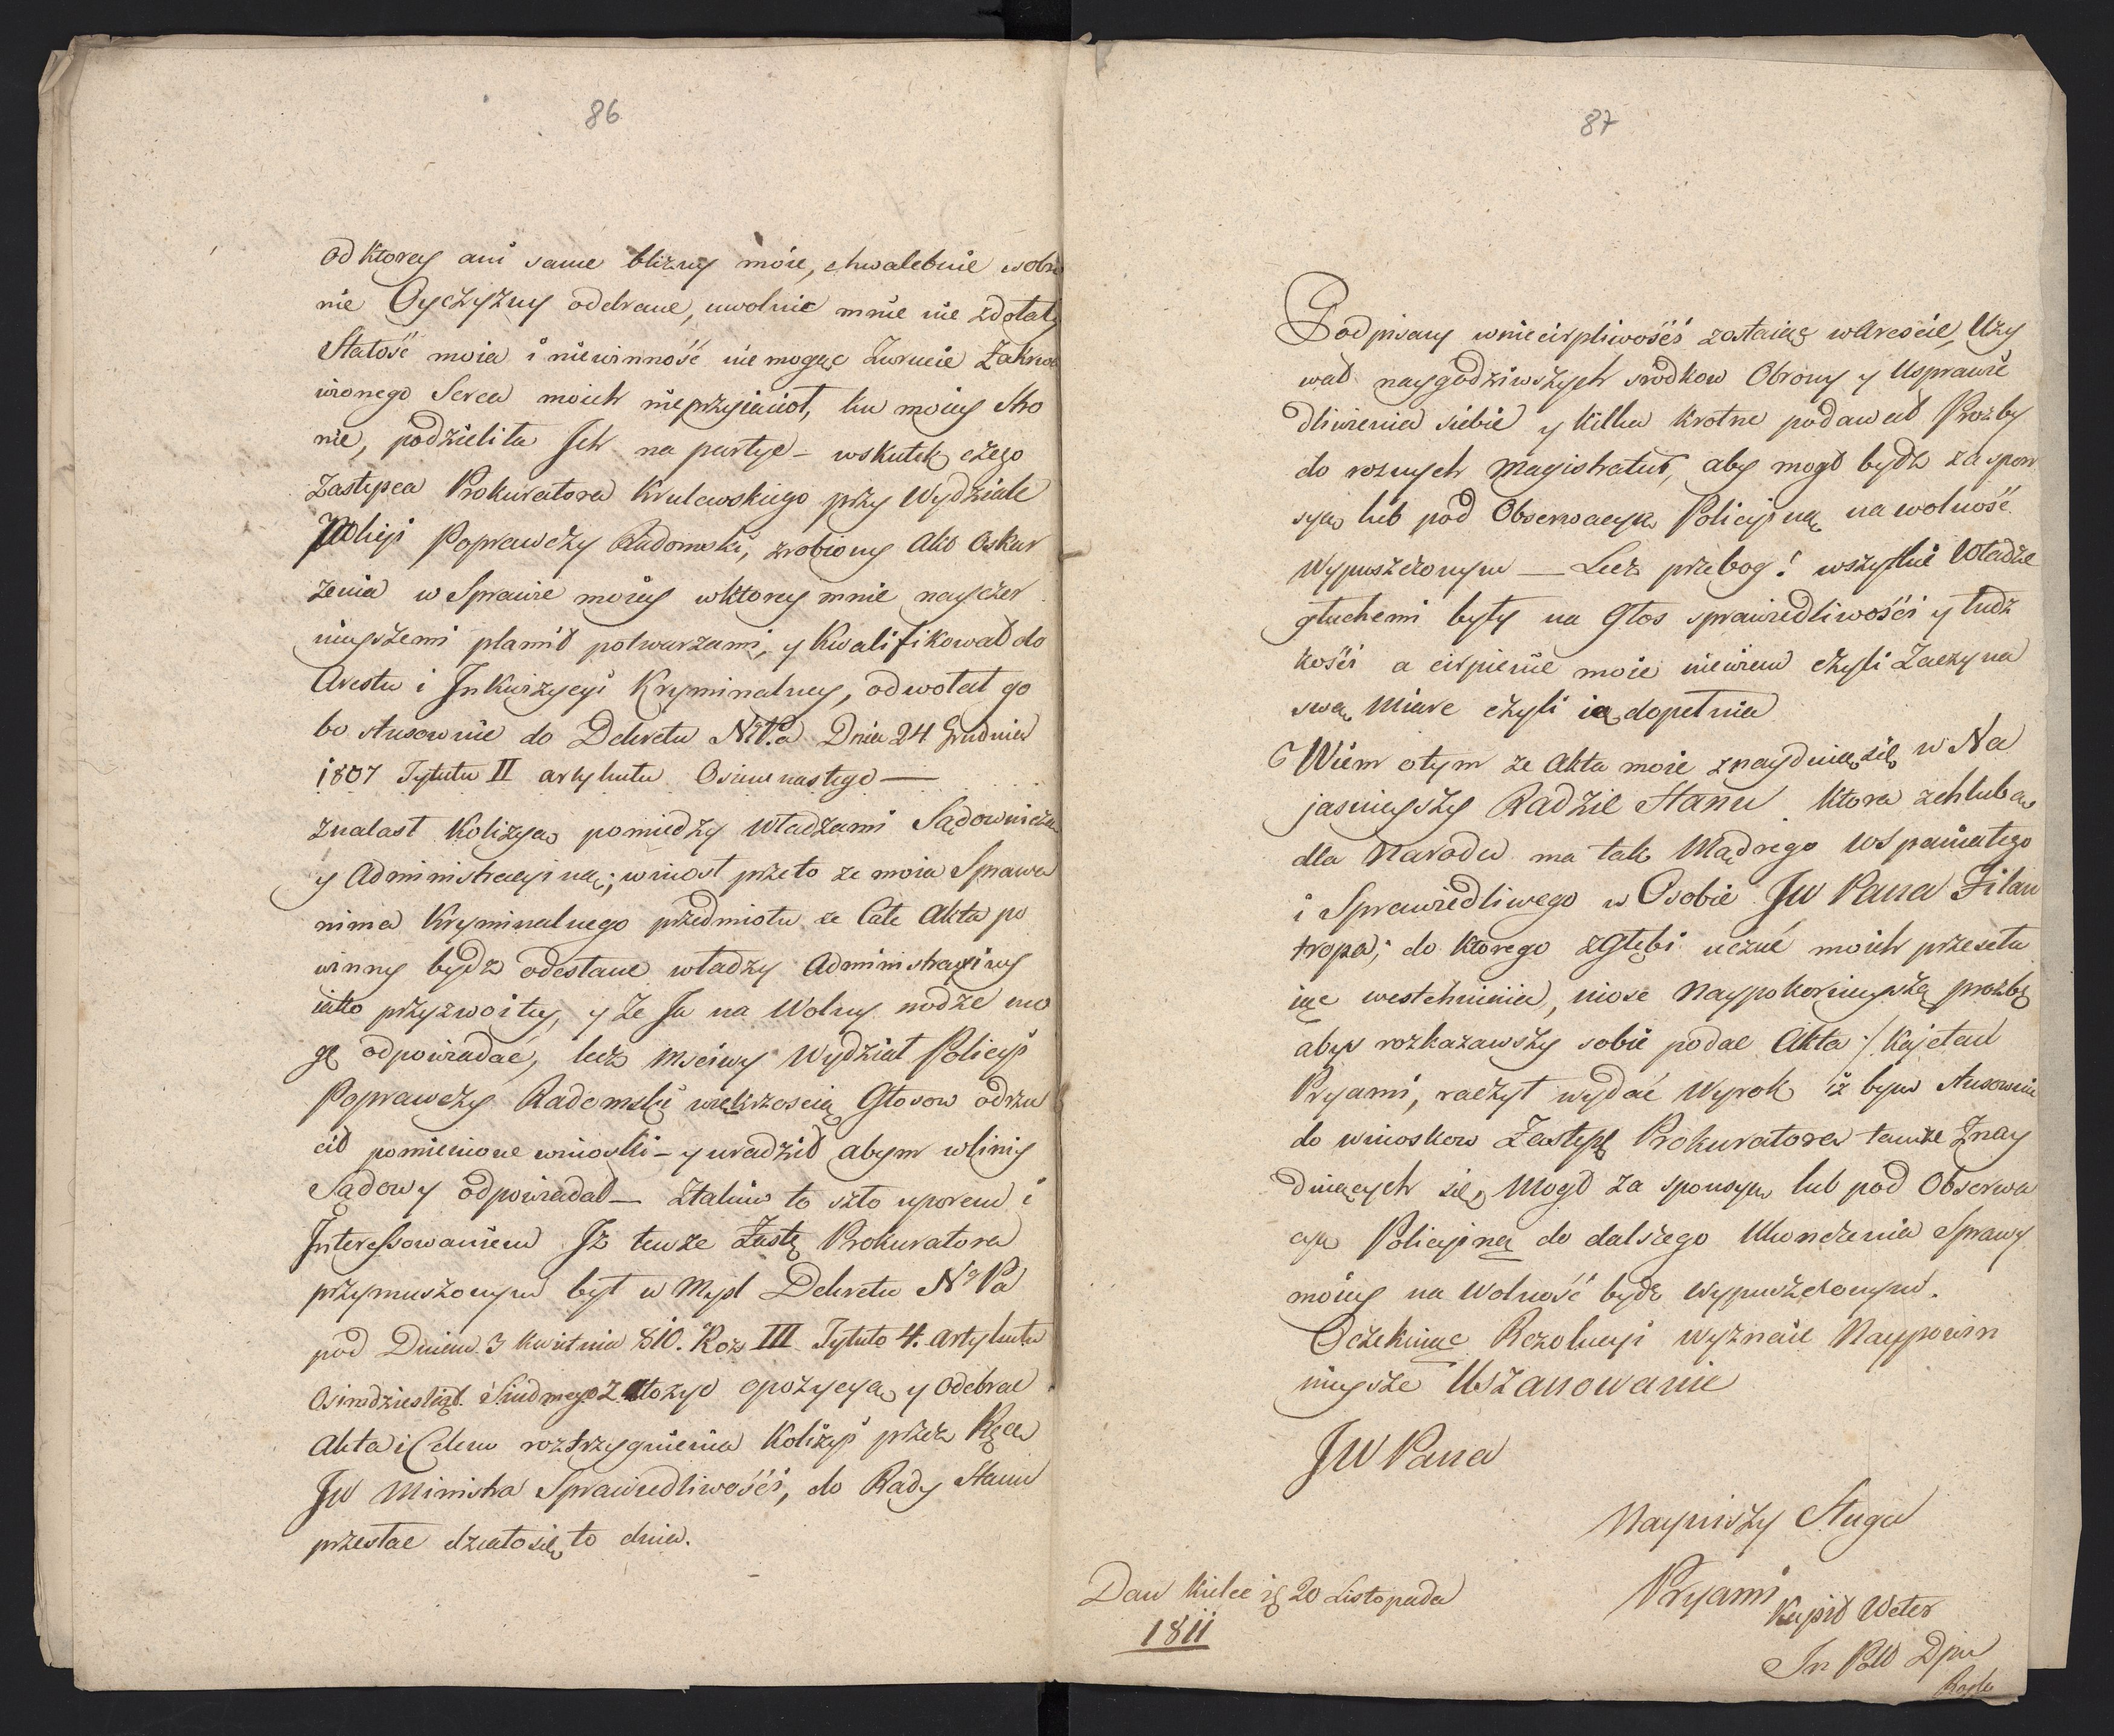 86
od ktorey ani same blizny moie, chwalebnie wobro
nie Oyczyzny odebrane, uwolnic mnie nie zdołały
Stałość moia i niewinność nie mogąc Zwrucic Zakrwa
wionego Serca moich nieprzyiacioł, ku moiey Stro
nie, podzieliła Ich na partye – wskutek czego
Zastępca Prokuratora Krulewskiego przy Wydziale
Policyi Poprawczy Radomski, zrobiony Akt Oskar
żenia w Sprawie moiey wktorey mnie nayczer
nieyszemi plamił potwarzami, y kwalifikował do
Arestu i Inkwizycyi Kryminalney, odwołał go
bo stusownie do Dekretu N: Pa Dnia 24 Grudnia
1807 Tytułu II artykułu Osimnastego —
znalazł Kolizyą pomiędzy Władzami Sądownicza
y Administracyiną; wniosł przeto ze moia Sprawa
nima Kryminalnego przedmiotu ze Całe Akta po
winny bydz odesłane władzy Administracyiney
iako przyzwoitey, y że Ja na Wolney nodze mo
gę odpowiadać, lecz Msciwy Wydział Policyi
Poprawczy Radomski większoscią Głosow odrzu
cił pomienione wnioski – y uradził abym wlinii
Sądowy odpowiadał – Ztakim to szło uporem i
Interessowaniem Iż tenze Zastę Prokuratora
przymuszonym był w Mysl Dekretu N: Pa
pod Dniem 3 kwietnia 810. Roz III Tytuło 4. artykułu
Osimdziesiąt Siudmego Założyc opozycyą y odebrac
Akta i Celem roztrzygnienia Kolizyi przez Ręce
JW Ministra Sprawiedliwości, do Rady Stanu
przesłac działosię to dnia.
87
Podpisany wniecirpliwości zostaiąc wAreście, Uży
wał naygodziwszych srodkow Obrony y Usprawie
dliwienia siebie y kilka krotne podawał Prozby
do roznych Magistratur, aby mogł bydz za spon
syą lub pod Obserwacyą Policyiną na wolność
Wypuszczonym — Lecz przebog! wszystkie Władze
głuchemi były na Głos sprawiedliwości y ludz
kości a cirpienie moie niewiem czyli Zaczyna
swą Miare czyli ią dopełnia
Wiem otym ze Akta moie znayduią się w Na
jasnieyszy Radzie Stanu ktora zchlubą
dla Narodu ma tak Mądrego Wspaniałego
i Sprawiedliwego w Osobie JW Pana Filan
tropa; do ktorego zGłębi uczuć moich przesełu
iąc westchnienia, niose Naypokornieyszą prozbę
abys rozkazawszy sobie podac Akta :/ Kajetan
Pryami, raczył wydać Wyrok iż bym stusownie
do wnioskow Zastępę Prokuratora tamże Znay
duiących się, Mogł za sponsyą lub pod Obserwa
cyą Policyiną do dalszego Ukonczenia Sprawy
moiey na Wolność bydz Wypuszczonym.
Oczekuiąc Rezolucyi wyznaie Naypowin
nieysze Uszanowanie
JW Pana
Nayniszy Sługa
Pryami
Kapit Weter
Dan Kielce 20 Listopada
1811